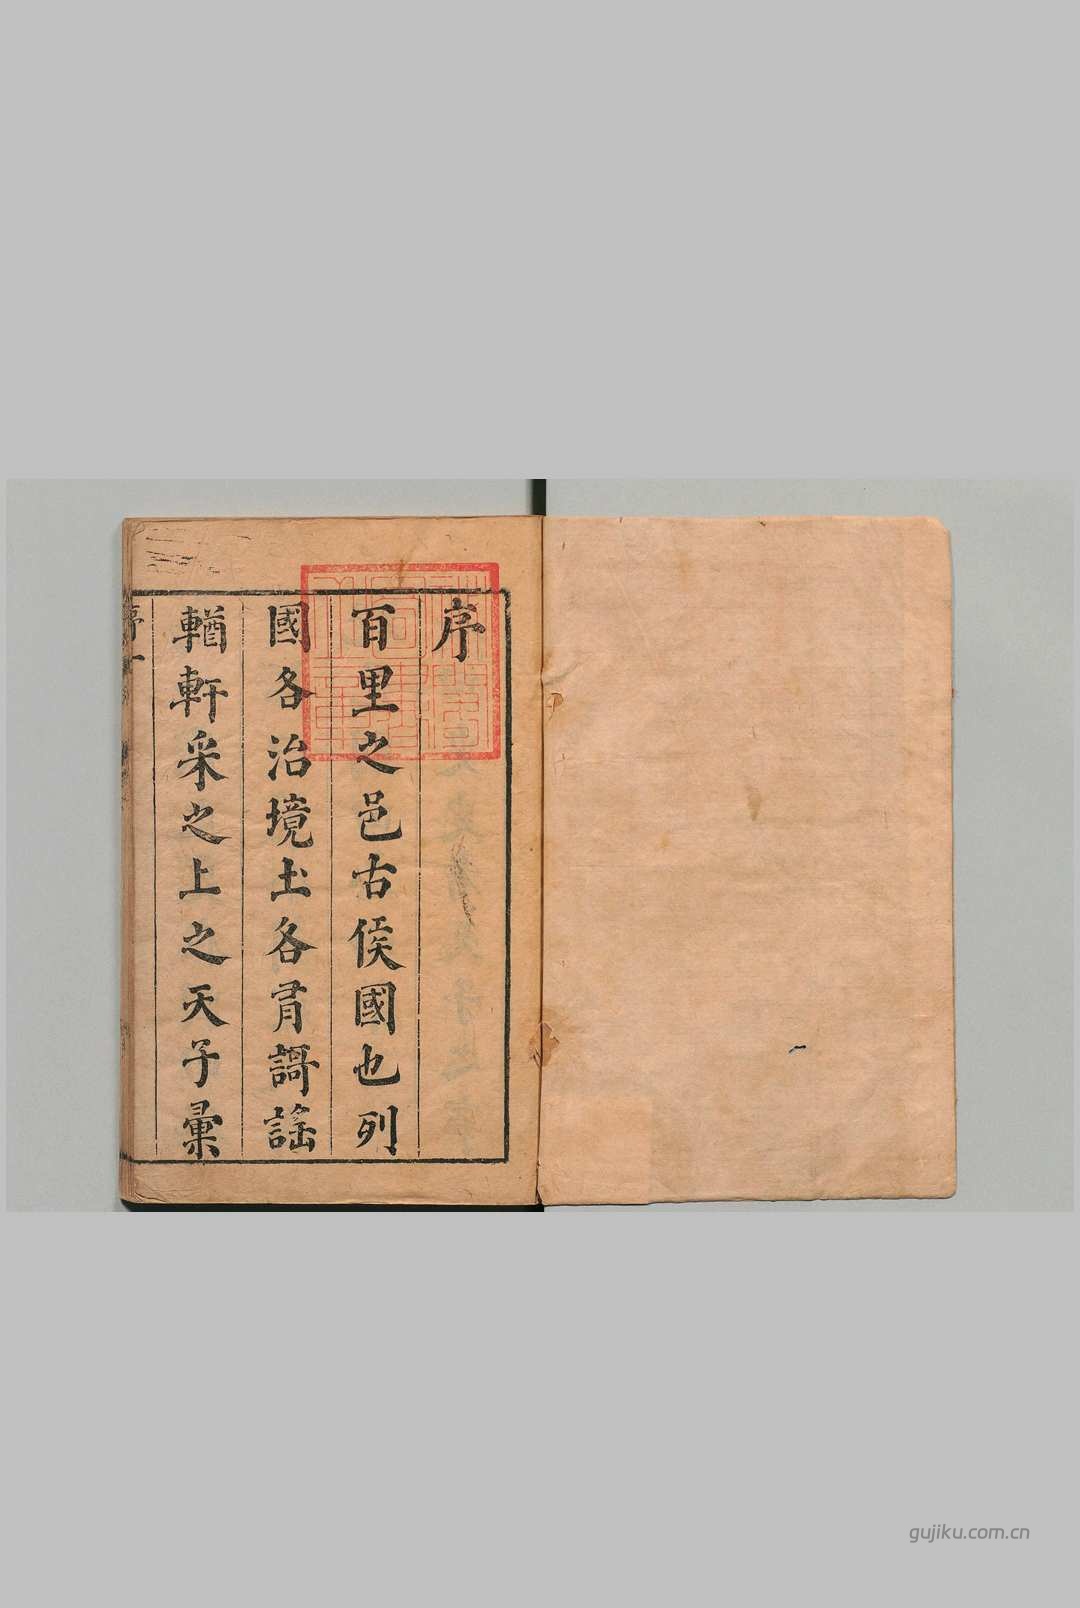 序
百里之邑古侯國也列
國各治境土各有謌謠
輶軒采之上之天子彙
序 一
gujiku.com.cn